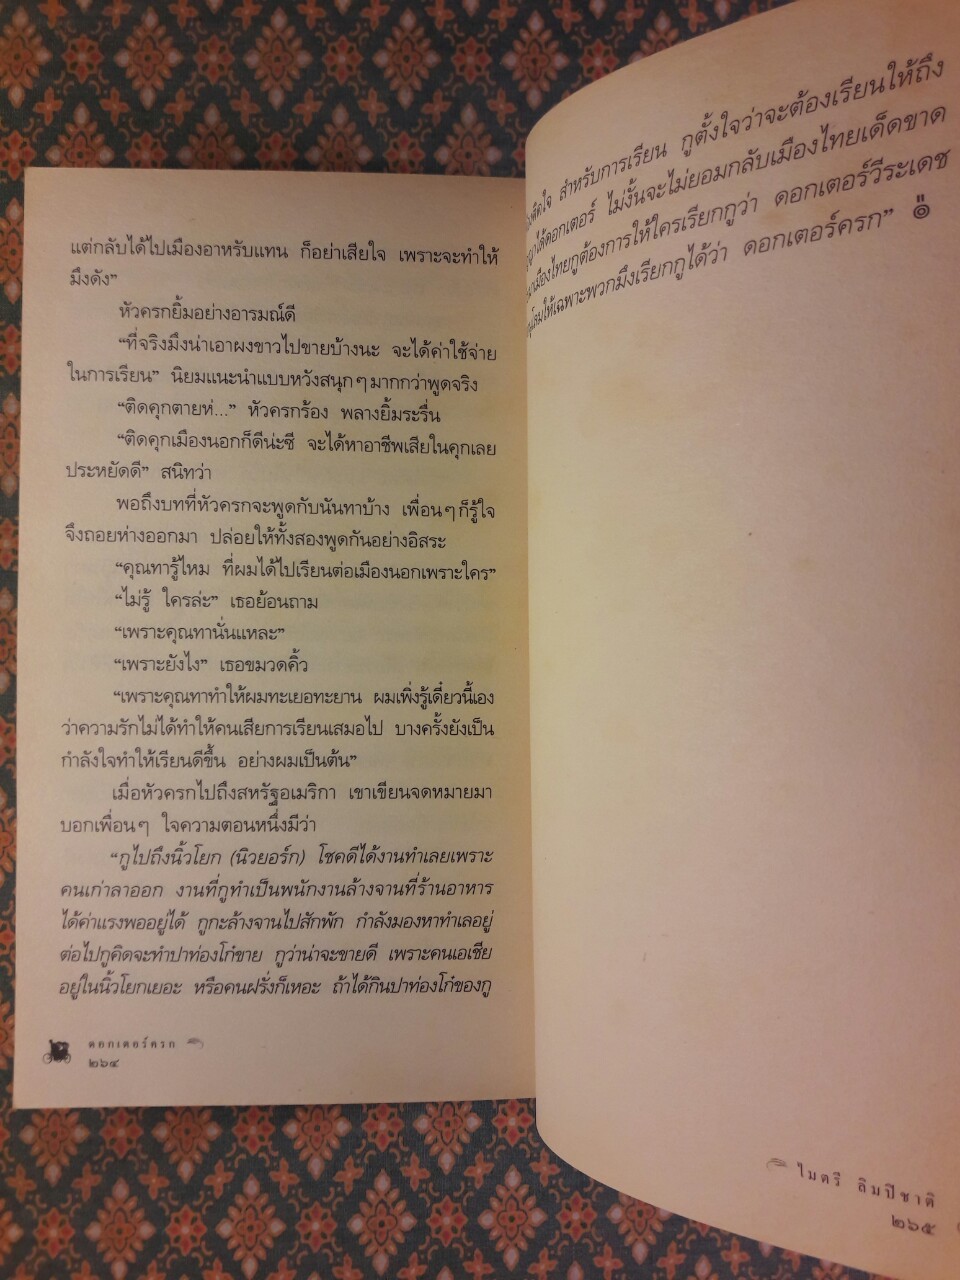 แต่กลับได้ไปเมืองอาหรับแทน ก็อย่าเสียใจ เพราะจะทำให้
มึงดัง”
หัวครกยิ้มอย่างอารมณ์ดี
“ที่จริงมึงน่าเอาผงขาวไปขายบ้างนะ จะได้ค่าใช้จ่าย
ในการเรียน” นิยมแนะนำแบบหวังสนุกๆมากกว่าพูดจริง
“ติดคุกตายห่...” หัวครกร้อง พลางยิ้มระรื่น
“ติดคุกเมืองนอกก็ดีน่ะซี จะได้หาอาชีพเสียในคุกเลย
ประหยัดดี” สนิทว่า
พอถึงบทที่หัวครกจะพูดกับนันทาบ้าง เพื่อนๆก็รู้ใจ
จึงถอยห่างออกมา ปล่อยให้ทั้งสองพูดกันอย่างอิสระ
“คุณทารู้ไหม ที่ผมได้ไปเรียนต่อเมืองนอกเพราะใคร”
“ไม่รู้ ใครล่ะ” เธอย้อนถาม
“เพราะคุณทานั่นแหละ”
“เพราะยังไง” เธอขมวดคิ้ว
“เพราะคุณทาทำให้ผมทะเยอทะยาน ผมเพิ่งรู้เดี๋ยวนี้เอง
ว่าความรักไม่ได้ทำให้คนเสียการเรียนเสมอไป บางครั้งยังเป็น
กำลังใจทำให้เรียนดีขึ้น อย่างผมเป็นต้น”
เมื่อหัวครกไปถึงสหรัฐอเมริกา เขาเขียนจดหมายมา
บอกเพื่อนๆ ใจความตอนหนึ่งมีว่า
“กูไปถึงนิ้วโยก (นิวยอร์ก) โชคดีได้งานทำเลยเพราะ
คนเก่าลาออก งานที่กูทำเป็นพนักงานล้างจานที่ร้านอาหาร
ได้ค่าแรงพออยู่ได้ กูกะล้างจานไปสักพัก กำลังมองหาทำเลอยู่
ต่อไปกูคิดจะทำปาท่องโก๋ขาย กูว่าน่าจะขายดี เพราะคนเอเชีย
อยู่ในนิ้วโยกเยอะ หรือคนฝรั่งก็เหอะ ถ้าได้กินปาท่องโก๋ของกู
ดอกเตอร์ครก
๒๖๔
สำหรับการเรียน กูตั้งใจว่าจะต้องเรียนให้ถึง
ได้ดอกเตอร์ ไม่งั้นจะไม่ยอมกลับเมืองไทยเด็ดขาด
เมืองไทยกูต้องการให้ใครเรียกกูว่า ดอกเตอร์วีระเดช
ให้เฉพาะพวกมึงเรียกกูได้ว่า ดอกเตอร์ครก”
ไมตรี ลิมปิชาติ
๒๖๕